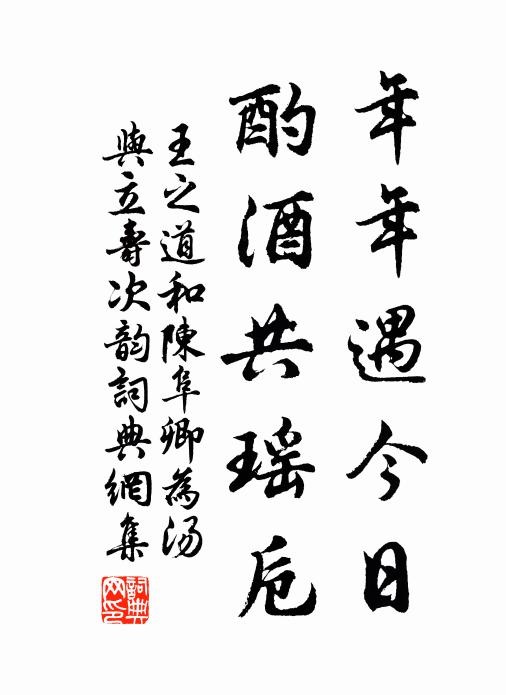 年年遇今日
酌酒共瑶卮
王之道和陳阜卿為湯
與立壽次韵詞典網集
詞典網印